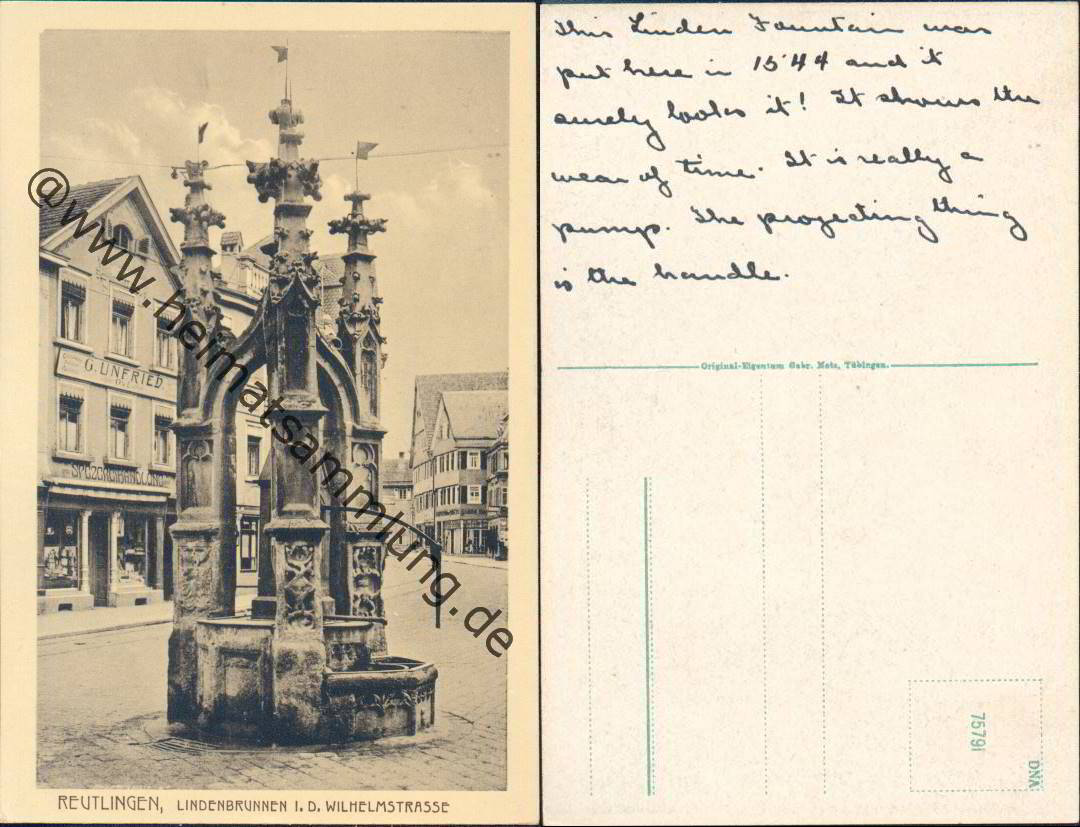 G. UNFRIED.
SPEZEREIHANDLUNG
@www.heimatsammlung.de
REUTLINGEN, LINDENBRUNNEN I. D. WILHELMSTRASSE
This Linden Fountain was
put here in 1544 and it
surely looks it! It shows the
wear of time. It is really a
pump. The projecting thing
is the handle.
Original-Eigentum Gebr. Metz, Tübingen.
75791
DNA